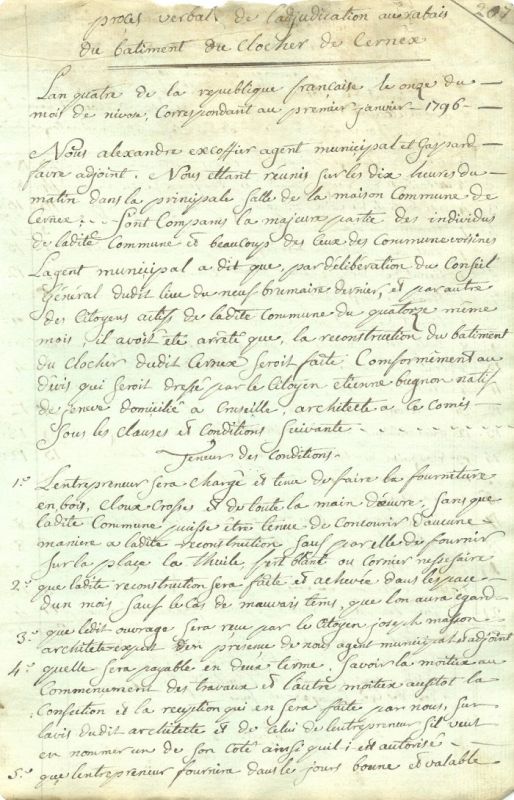 procès verbal de ladjudication au rabais
du batiment du Clocher de Cernex
Lan quatre de la republique française, le onze du
mois de nivose, Correspondant au premier janvier 1796
Nous alexandre excoffier agent municipal et Gaspard
favre adjoint. Nous Etant reunis sur les dix heures du
matin dans la principale Salle de la maison Commune de
Cernex; Sont Comparus la majeure partie des individus
de ladite Commune et beaucoups des Ceux des Commune voisines
Lagent municipal a dit que par délibération du Conseil
Général dudit lieu du neuf brumaire dernier, et par autre
des Citoyens actifs de ladite Commune du quatorze meme
mois, il avoit été arreté que, la reconstruction du batiment
du Clocher dudit Cernex Seroit faite Comformément au
divis qui Seroit dressé par le Citoyen etienne bugnon natif
de jeneve domicilié a Cruseille, architecte a Ce Comis
Sous les Clauses et Conditions Suivante
Teneur des Conditions.
1.o Lentrepreneur Sera Chargé et tenu de faire la fourniture
en bois, Cloux Crosses et de toute la main dœuvre, Sans que
ladite Commune puisse être tenue de Concourir daucune
manière a ladite reconstruction Sauf par elle de fournir
Sur la place la thuile, fert blanc ou Cornier nessesaire
2.o que ladite reconstruction Sera faite et achevée dans lespace
dun mois Sauf le Cas de mauvais tems, que lon aura égard
3.o que ledit ouvrage Sera reçu par le Citoyen joseph masson
architete expert den présence de nous agent municipal et adjoint
4.o quelle Sera payable en deux terme, Savoir la moitiée au
Commencement des travaux et lautre moitiée aussitot la
Confection et la reception qui en Sera faite par nous, Sur
lavis dudit architecte et de Celui de lentrepreneur Sil veut
en nommer un de Son Coté ainsi quil i est autorisé
5.o que lentrepreneur fournira dans le jours bonne et valable